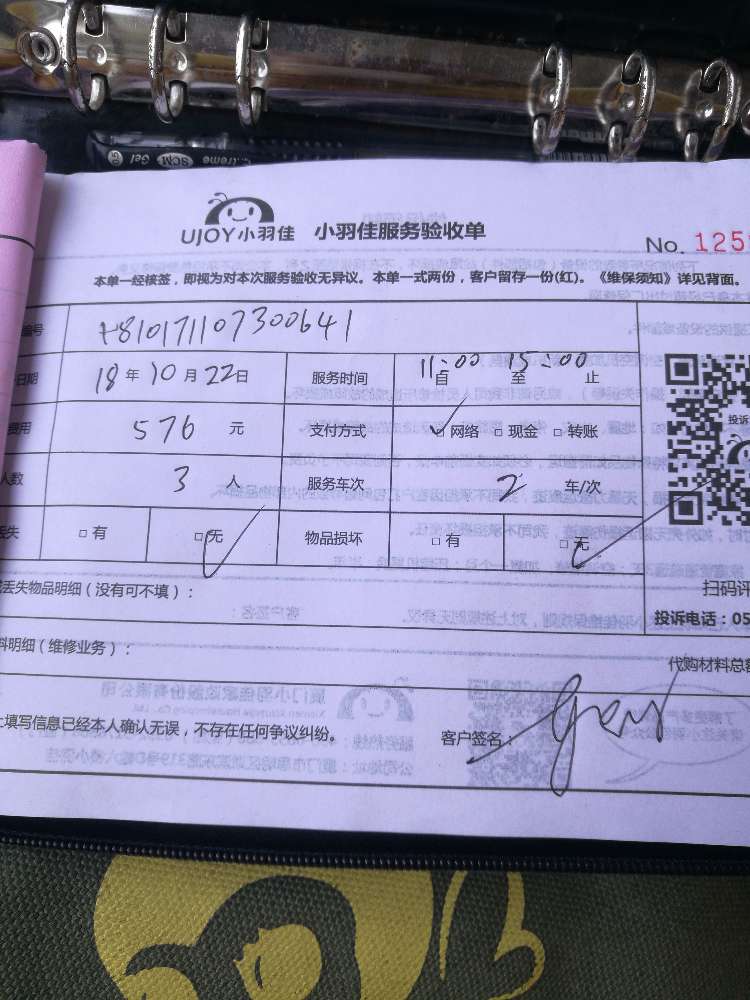 UJOY小羽佳 小羽佳服务验收单
No. 125
本单一经核签，即视为对本次服务验收无异议。本单一式两份，客户留存一份(红)。《维保须知》详见背面。
编号 t810171107300641
日期 18 年 10 月 22 日 服务时间 11:00 自 至 15:00 止
费用 576 元 支付方式 □网络 □现金 □转账
人数 3 人 服务车次 2 车/次
丢失 □有 □无 物品损坏 □有 □无
丢失物品明细（没有可不填）：
扫码评
投诉电话：05
料明细（维修业务）：
代购材料总额
上填写信息已经本人确认无误，不存在任何争议纠纷。
客户签名：